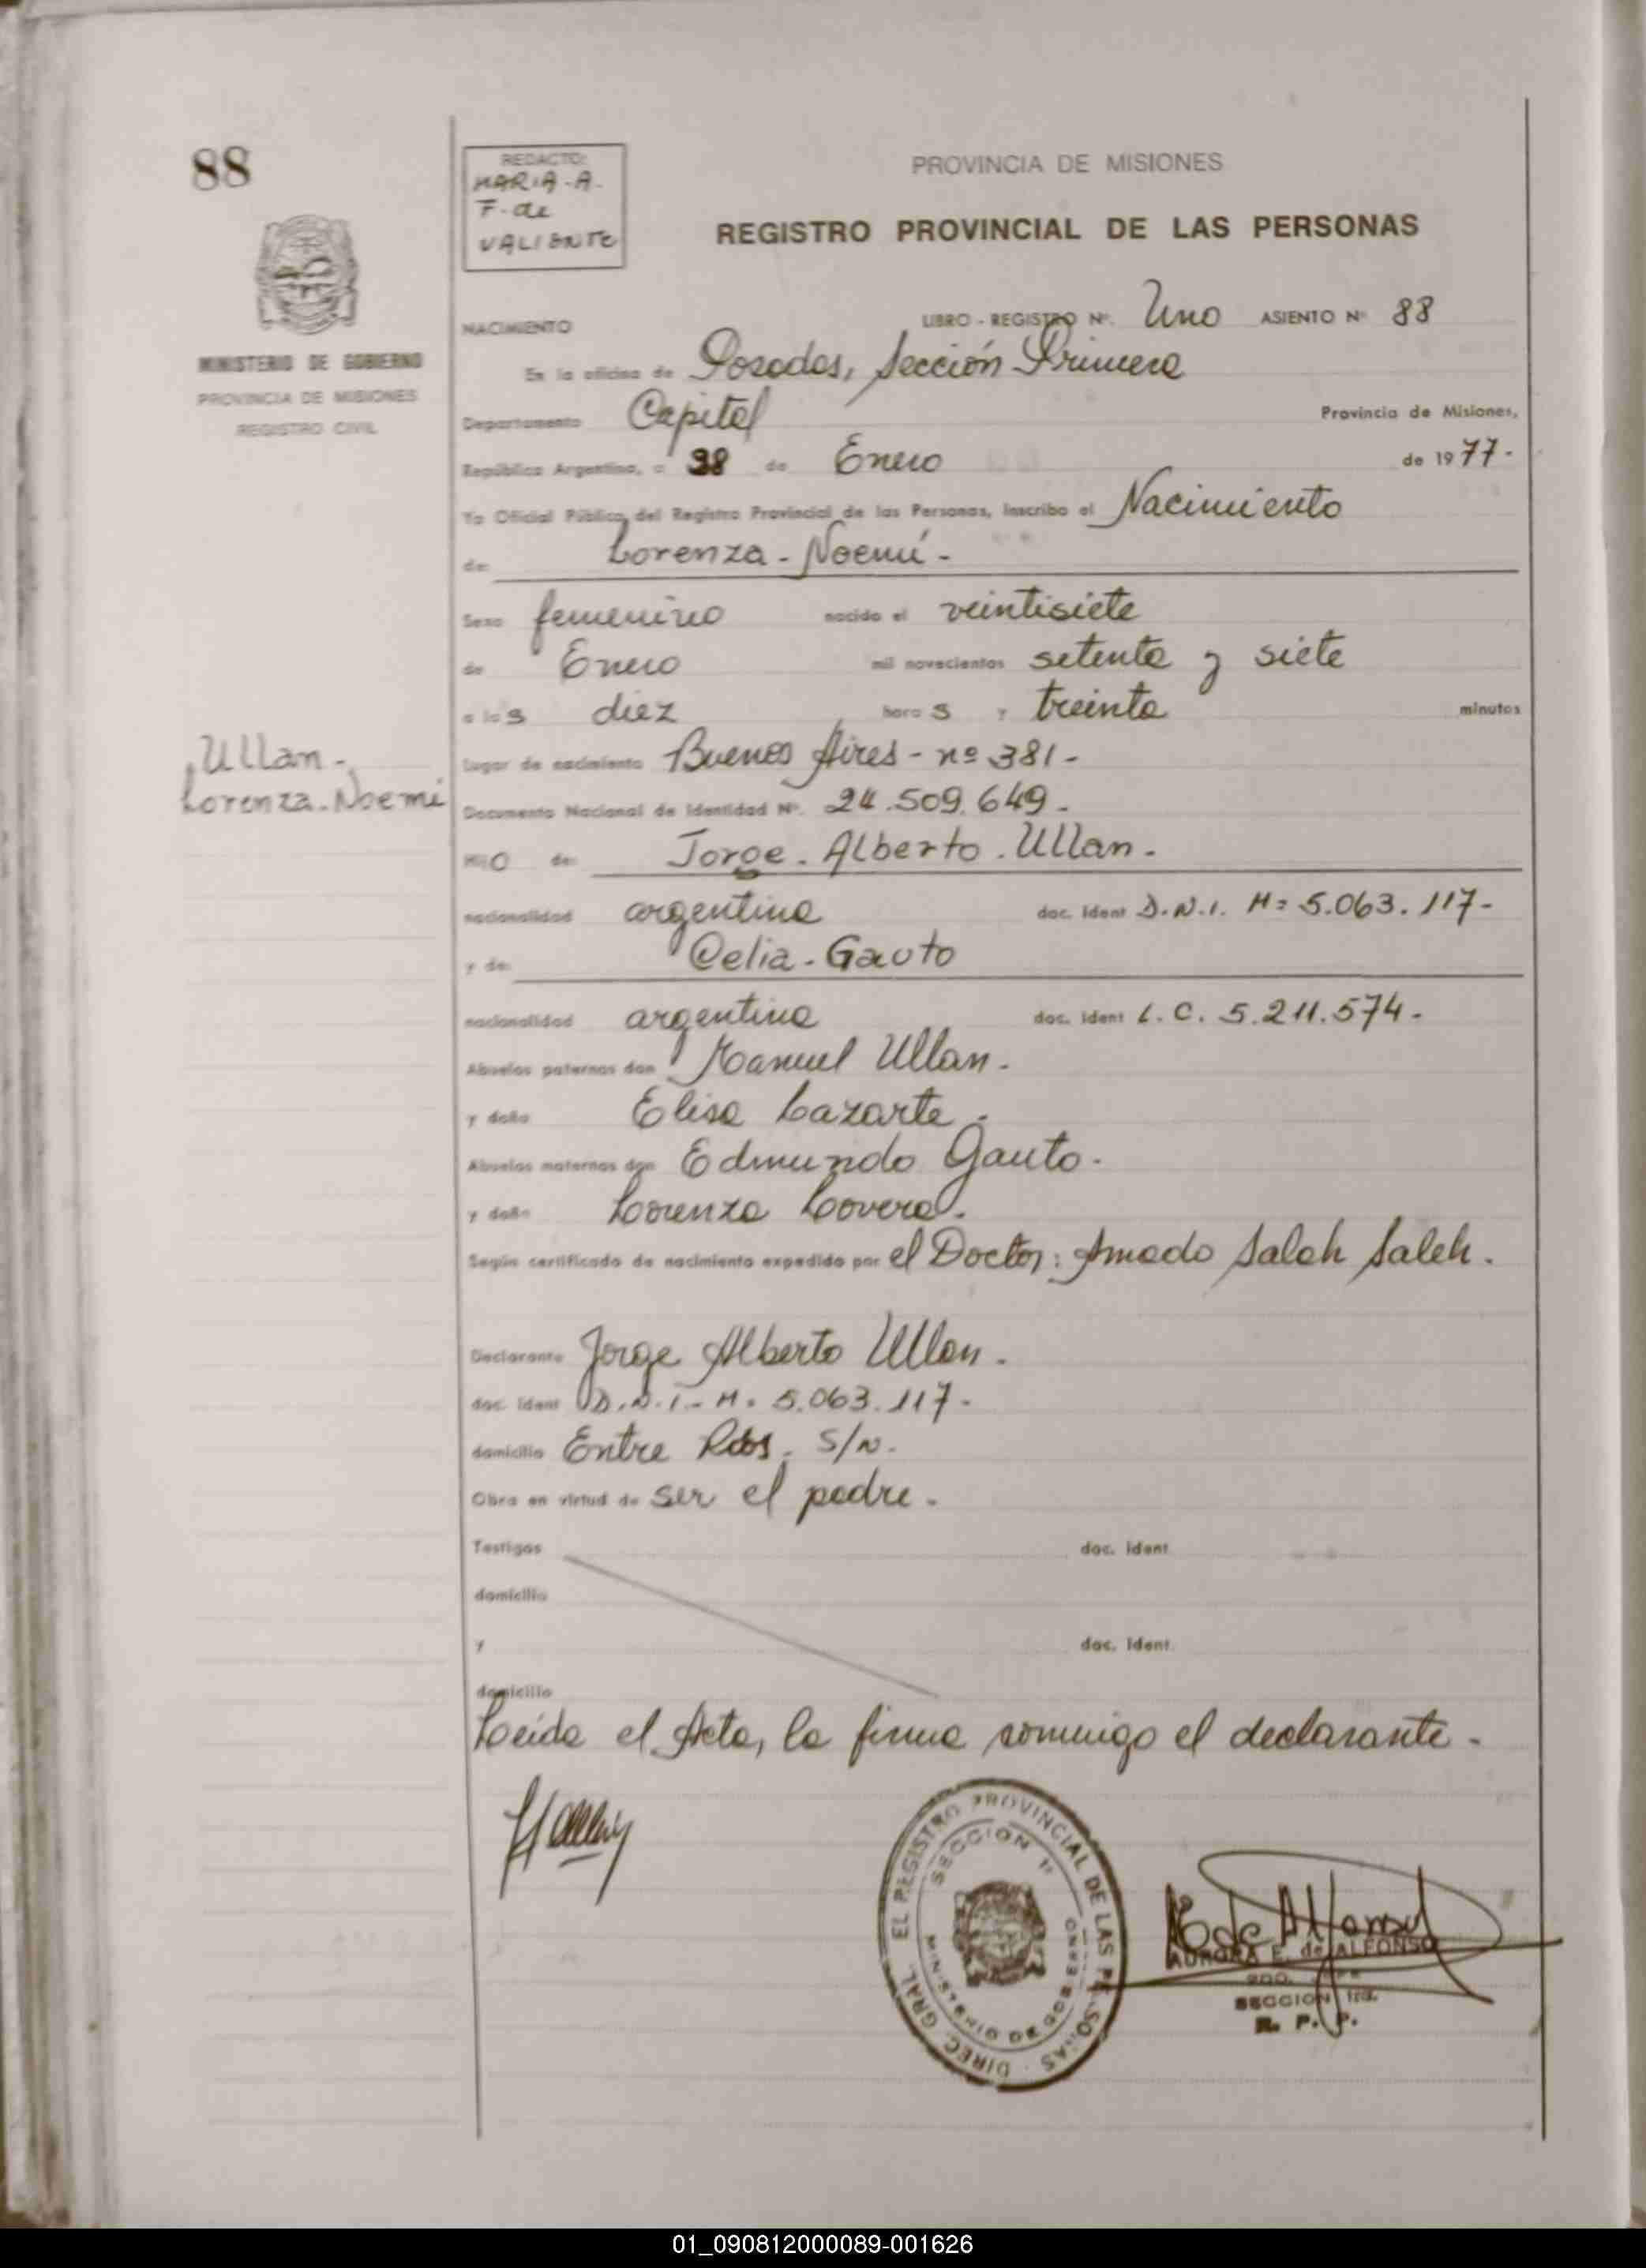 88
REDACTO:
MARIA-A.
F. de
VALIENTE
PROVINCIA DE MISIONES
REGISTRO PROVINCIAL DE LAS PERSONAS
MINISTERIO DE GOBIERNO
PROVINCIA DE MISIONES
REGISTRO CIVIL
NACIMIENTO
LIBRO - REGISTRO Nº. Uno ASIENTO Nº 88
En la oficina de Posadas, Sección Primera
Departamento Capital Provincia de Misiones,
República Argentina, a de Enero de 1977.
Yo Oficial Público, del Registro Provincial de las Personas, inscribo el Nacimiento
de: Lorenza - Noemí -
Sexo femenino nacido el veintisiete
de Enero mil novecientos setenta y siete
a las diez horas y treinta minutos
Ullan -
Lorenza - Noemi
Lugar de nacimiento Buenos Aires - nº 381 -
Documento Nacional de Identidad Nº. 24.509.649 -
Hijo de: Jorge - Alberto - Ullan -
nacionalidad argentina doc. ident D.N.I. M= 5.063.117-
y de: Celia - Gauto
nacionalidad argentina doc. ident L.C. 5.211.574 -
Abuelos paternos don Manuel Ullan .
y doña Elisa Lazarte .
Abuelos maternos don Edmundo Gauto .
y doña Lorenza Lovera .
Según certificado de nacimiento expedido por el Doctor: Amado Saleh Saleh .
Declarante Jorge Alberto Ullan .
doc. ident D.N.I - M. 5.063.117 -
domicilio Entre Ríos. S/N.
Obra en virtud de ser el padre .
Testigos doc. ident
domicilio
y doc. ident.
domicilio
Leída el Acta, la firma conmigo el declarante -
DIREC. GRAL. EL REGISTRO PROVINCIAL DE LAS PERSONAS
SECCION 1ª
MINISTERIO DE GOBIERNO
AURORA E. de ALFONSO
SECCION 1ra.
R. P. P.
01_090812000089-001626